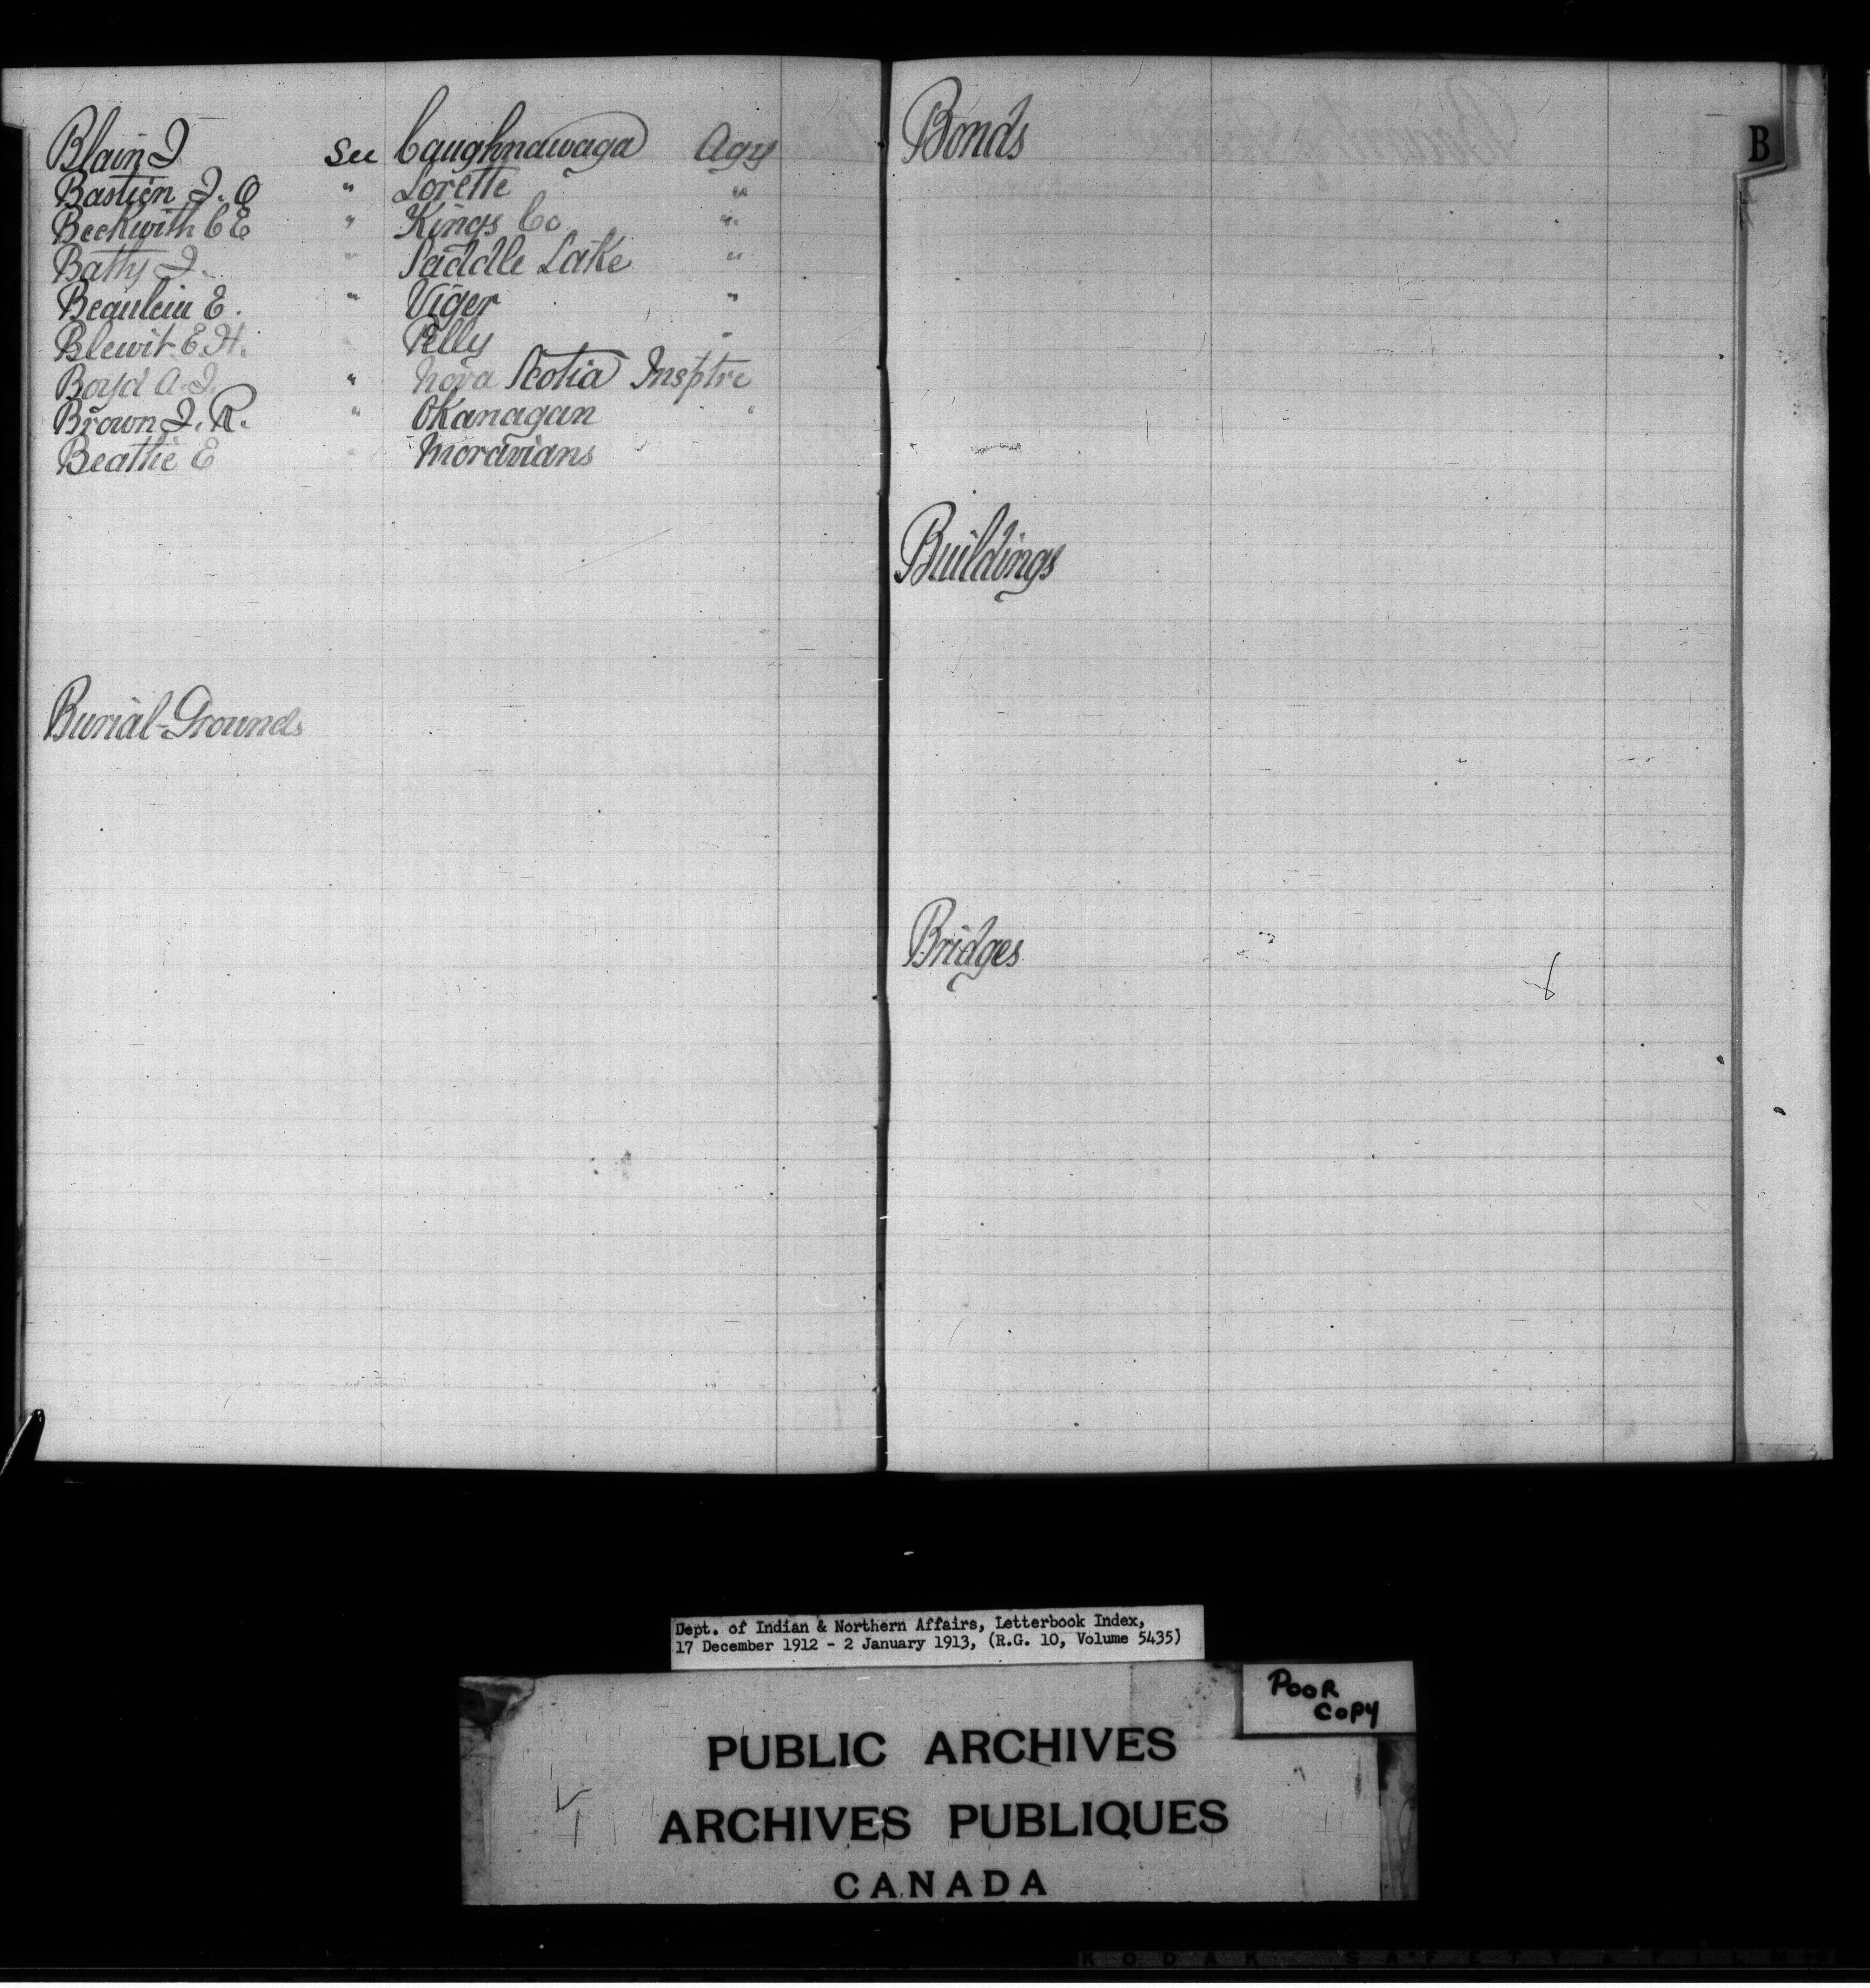 Blain J. See Caughnawaga Agy
Bastien J. O " Lorette "
Beckwith C E " Kings Co "
Batty J. " Saddle Lake "
Beaulein E. " Viger "
Blewit E. H. " Pelly "
Boyd A. J. " Nova Scotia Insptre
Brown J. R. " Okanagan "
Beattie E " Moravians
Burial-Grounds
Bonds
B
Buildings
Bridges
Dept. of Indian & Northern Affairs, Letterbook Index,
17 December 1912 - 2 January 1913, (R.G. 10, Volume 5435)
POOR
COPY
PUBLIC ARCHIVES
ARCHIVES PUBLIQUES
CANADA
KODAK SAFETY FILM